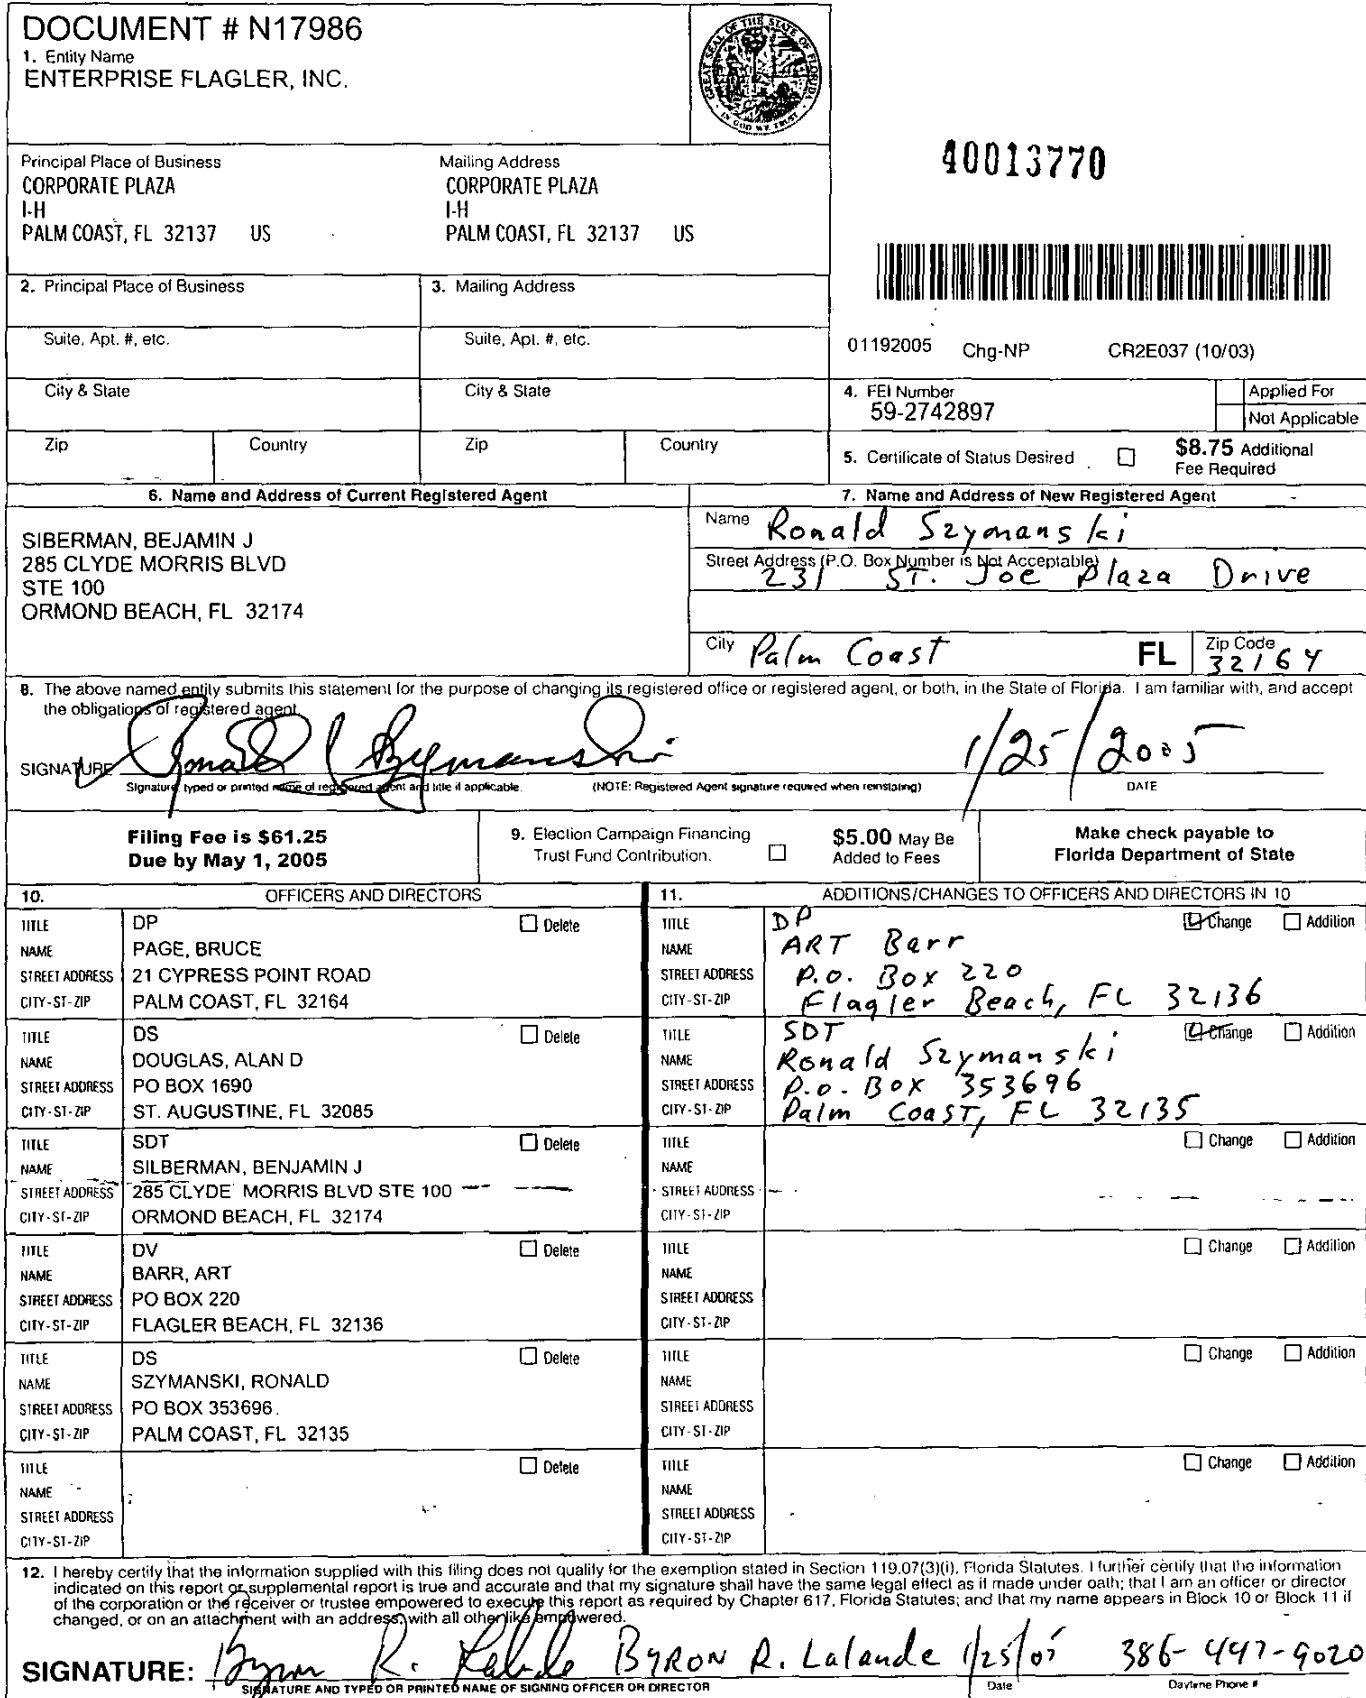 DOCUMENT # N17986
1. Entity Name
ENTERPRISE FLAGLER, INC.
GREAT SEAL OF THE STATE OF FLORIDA
IN GOD WE TRUST
40013770
Principal Place of Business
CORPORATE PLAZA
I-H
PALM COAST, FL 32137 US
Mailing Address
CORPORATE PLAZA
I-H
PALM COAST, FL 32137 US
2. Principal Place of Business
3. Mailing Address
Suite, Apt. #, etc.
Suite, Apt. #, etc.
01192005 Chg-NP CR2E037 (10/03)
City & State
City & State
4. FEI Number
59-2742897
Applied For
Not Applicable
Zip Country
Zip Country
5. Certificate of Status Desired
$8.75 Additional
Fee Required
6. Name and Address of Current Registered Agent
SIBERMAN, BEJAMIN J
285 CLYDE MORRIS BLVD
STE 100
ORMOND BEACH, FL 32174
7. Name and Address of New Registered Agent
Name Ronald Szymanski
Street Address (P.O. Box Number is Not Acceptable)
231 ST. Joe Plaza Drive
City Palm Coast FL Zip Code 32164
8. The above named entity submits this statement for the purpose of changing its registered office or registered agent, or both, in the State of Florida. I am familiar with, and accept
the obligations of registered agent.
SIGNATURE Ronald Szymanski 1/25/2005
Signature, typed or printed name of registered agent and title if applicable. (NOTE: Registered Agent signature required when reinstating) DATE
Filing Fee is $61.25
Due by May 1, 2005
9. Election Campaign Financing
Trust Fund Contribution.
$5.00 May Be
Added to Fees
Make check payable to
Florida Department of State
10. OFFICERS AND DIRECTORS
11. ADDITIONS/CHANGES TO OFFICERS AND DIRECTORS IN 10
TITLE DP Delete
NAME PAGE, BRUCE
STREET ADDRESS 21 CYPRESS POINT ROAD
CITY-ST-ZIP PALM COAST, FL 32164
TITLE DP Change Addition
NAME ART Barr
STREET ADDRESS P.O. Box 220
CITY-ST-ZIP Flagler Beach, FL 32136
TITLE DS Delete
NAME DOUGLAS, ALAN D
STREET ADDRESS PO BOX 1690
CITY-ST-ZIP ST. AUGUSTINE, FL 32085
TITLE SDT Change Addition
NAME Ronald Szymanski
STREET ADDRESS P.O. Box 353696
CITY-ST-ZIP Palm Coast, FL 32135
TITLE SDT Delete
NAME SILBERMAN, BENJAMIN J
STREET ADDRESS 285 CLYDE MORRIS BLVD STE 100
CITY-ST-ZIP ORMOND BEACH, FL 32174
TITLE Change Addition
NAME
STREET ADDRESS
CITY-ST-ZIP
TITLE DV Delete
NAME BARR, ART
STREET ADDRESS PO BOX 220
CITY-ST-ZIP FLAGLER BEACH, FL 32136
TITLE Change Addition
NAME
STREET ADDRESS
CITY-ST-ZIP
TITLE DS Delete
NAME SZYMANSKI, RONALD
STREET ADDRESS PO BOX 353696
CITY-ST-ZIP PALM COAST, FL 32135
TITLE Change Addition
NAME
STREET ADDRESS
CITY-ST-ZIP
TITLE Delete
NAME
STREET ADDRESS
CITY-ST-ZIP
TITLE Change Addition
NAME
STREET ADDRESS
CITY-ST-ZIP
12. I hereby certify that the information supplied with this filing does not qualify for the exemption stated in Section 119.07(3)(i), Florida Statutes. I further certify that the information
indicated on this report or supplemental report is true and accurate and that my signature shall have the same legal effect as if made under oath; that I am an officer or director
of the corporation or the receiver or trustee empowered to execute this report as required by Chapter 617, Florida Statutes; and that my name appears in Block 10 or Block 11 if
changed, or on an attachment with an address, with all other like empowered.
SIGNATURE: Byron R. Lalande BYRON R. Lalande 1/25/05 386-447-9020
SIGNATURE AND TYPED OR PRINTED NAME OF SIGNING OFFICER OR DIRECTOR Date Daytime Phone #